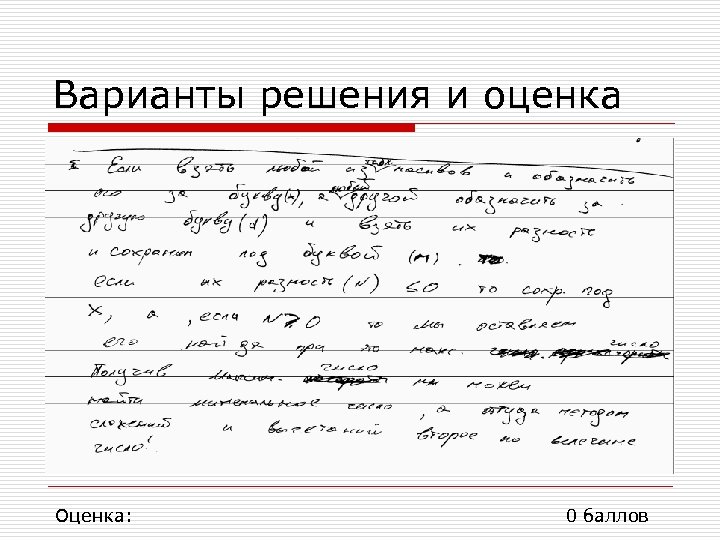 Варианты решения и оценка
I Если взять любой из трех масивов и обазначить
его за букву(x), а любой другой обазначить за
другую букву (y) и взять их разность
и сохраним под буквой (м).
если их разность (N) ≤0 то сохр. под
X, а , если N≥0 то мы оставляем
его при то макс. число
Получив максим. число мы можем
найти минемальное число , а отуда методом
сложений и высетаний второе по велечине
число!
Оценка: 0 баллов